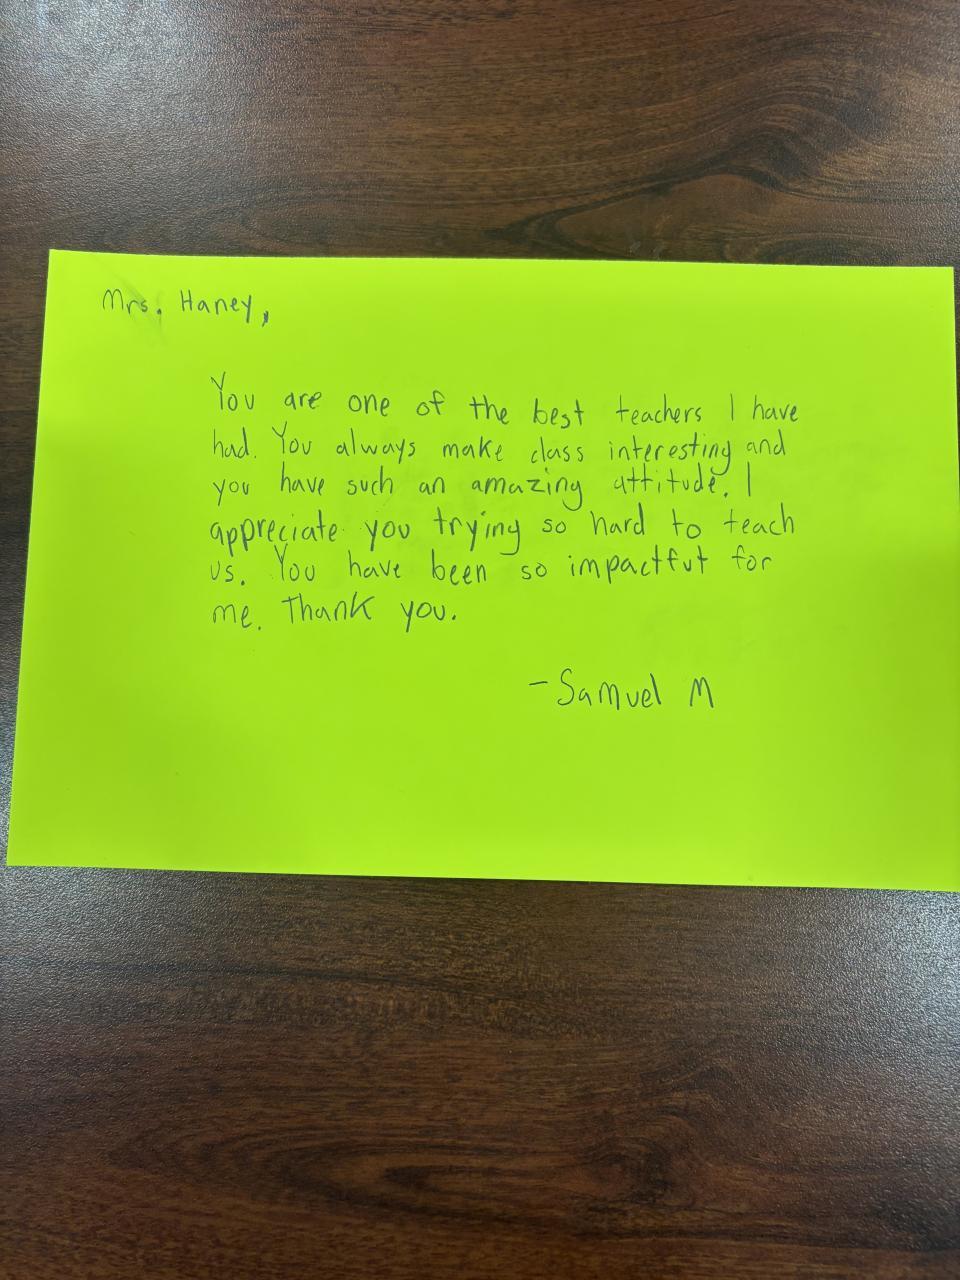 Mrs. Haney,
You are one of the best teachers I have
had. You always make class interesting and
you have such an amazing attitude. I
appreciate you trying so hard to teach
us. You have been so impactful for
me. Thank you.
-Samuel M